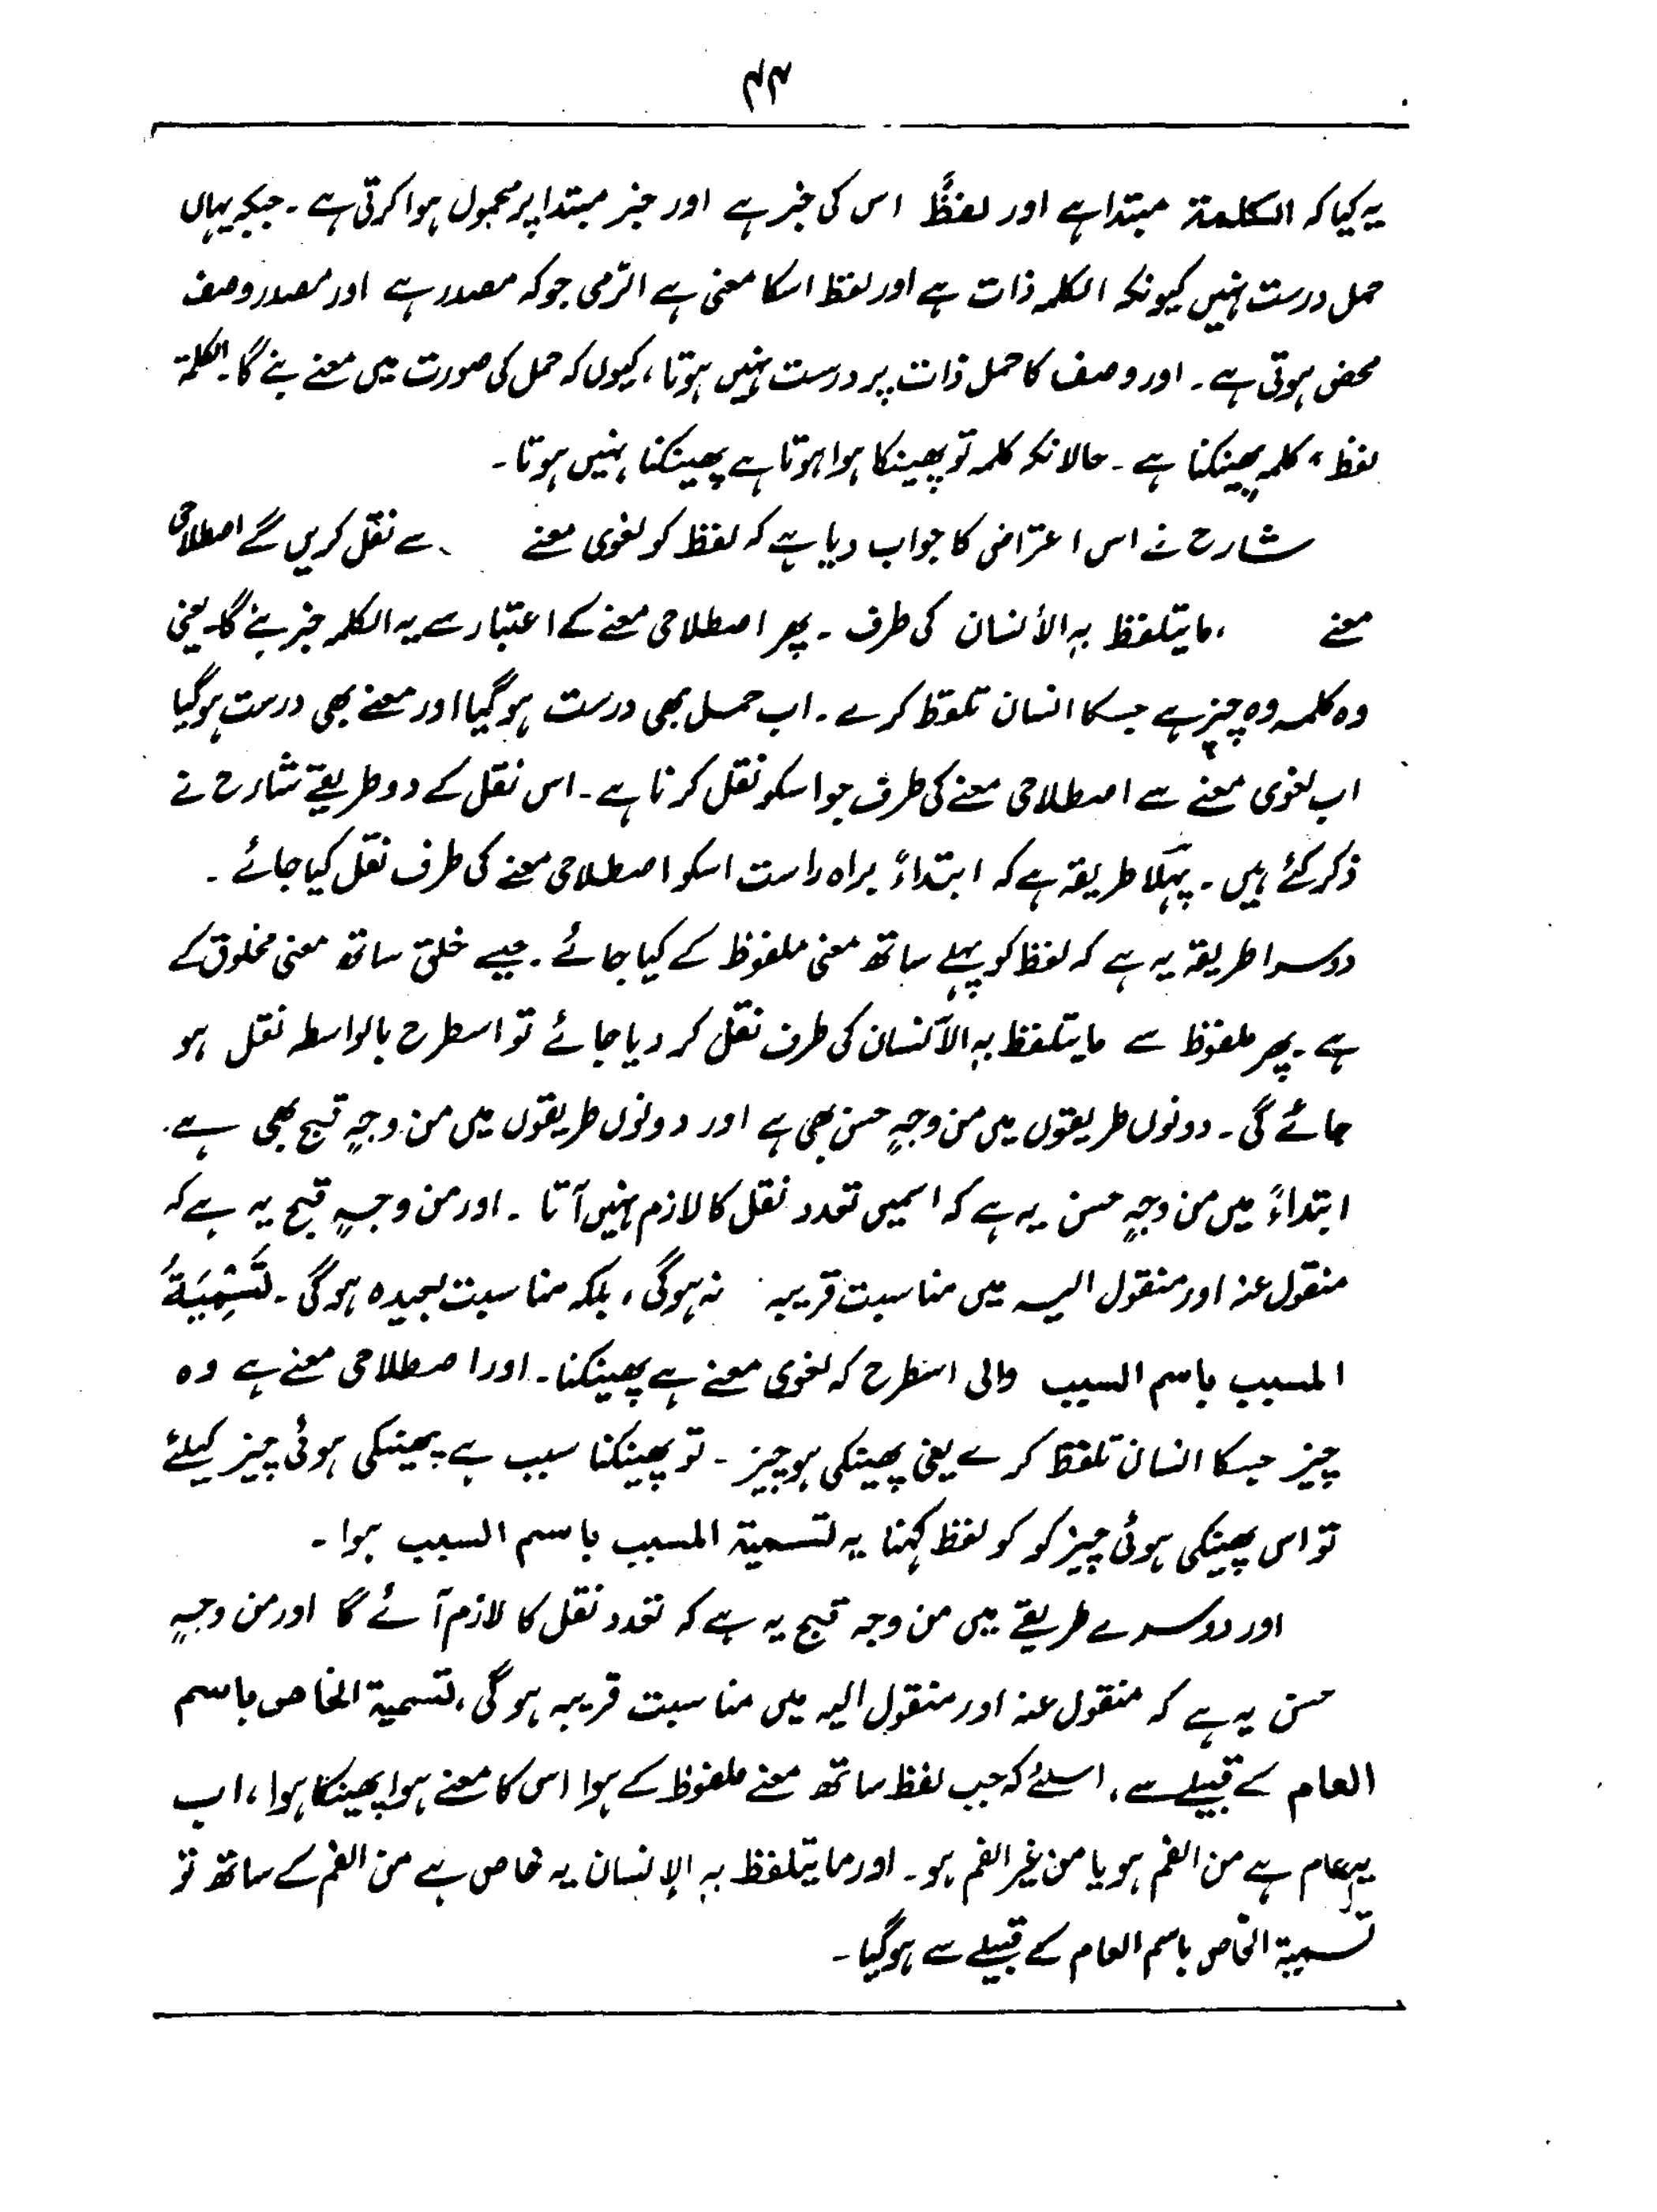 ۴۴
یہ کیا کہ الکلمۃ مبتدا ہے اور لفظٌ اس کی خبر ہے اور خبر مبتدا پر محمول ہوا کرتی ہے ۔ جبکہ یہاں
حمل درست نہیں کیونکہ الکلمہ ذات ہے اور لفظ اسکا معنی ہے الرّمی جو کہ مصدر ہے اور مصدر وصف
محض ہوتی ہے ۔ اور وصف کا حمل ذات پر درست نہیں ہوتا ، کیوں کہ حمل کی صورت میں معنے بنے گا۔ الکلمۃ
لفظ ، کلمہ پھینکنا ہے ۔ حالانکہ کلمہ تو پھینکا ہوا ہوتا ہے پھینکنا نہیں ہوتا ۔
شارح نے اس اعتراض کا جواب دیا ہے کہ لفظ کو لغوی معنے سے نقل کریں گے اصطلاحی
معنے ، ما یتلفظ بہٖ الأنسان کی طرف ۔ پھر اصطلاحی معنے کے اعتبار سے یہ الکلمہ خبر بنے گا۔ یعنی
وہ کلمہ وہ چیز ہے جسکا انسان تلفظ کرے ۔ اب حمل بھی درست ہو گیا اور معنے بھی درست ہو گیا
اب لغوی معنے سے اصطلاحی معنے کی طرف جو اسکو نقل کرنا ہے ۔ اس نقل کے دو طریقے شارح نے
ذکر کئے ہیں ۔ پہلا طریقہ ہے کہ ابتداءً براہ راست اسکو اصطلاحی معنے کی طرف نقل کیا جائے ۔
دوسرا طریقہ یہ ہے کہ لفظ کو پہلے ساتھ معنی ملفوظ کے کیا جائے ۔ جیسے خلق ساتھ معنی مخلوق کے
ہے ۔ پھر ملفوظ سے ما یتلفظ بہٖ الأنسان کی طرف نقل کر دیا جائے تو اسطرح بالواسطہ نقل ہو
جائے گی ۔ دونوں طریقوں میں من وجہٍ حسن بھی ہے اور دونوں طریقوں میں من وجہٍ قبح بھی ہے ۔
ابتداءً میں من وجہٍ حسن یہ ہے کہ اسمیں تعدد نقل کا لازم نہیں آتا ۔ اور من وجہٍ قبح یہ ہے کہ
منقول عنہ اور منقول الیہ میں مناسبت قریبہ نہ ہوگی ، بلکہ مناسبت بعیدہ ہوگی ۔ تَسْمِیَۃُ
المسبب باسم السبب والی اسطرح کہ لغوی معنے ہے پھینکنا ۔ اور اصطلاحی معنے ہے وہ
چیز جسکا انسان تلفظ کرے یعنی پھینکی ہو چیز ۔ تو پھینکنا سبب ہے پھینکی ہوئی چیز کیلئے
تو اس پھینکی ہوئی چیز کو کو لفظ کہنا یہ تسمیۃ المسبب باسم السبب ہوا ۔
اور دوسرے طریقے میں من وجہ قبح یہ ہے کہ تعدد نقل کا لازم آئے گا اور من وجہٍ
حسن یہ ہے کہ منقول عنہ اور منقول الیہ میں مناسبت قریبہ ہوگی ، تسمیۃ الخاص باسم
العام کے قبیلے سے ، اسلئے کہ جب لفظ ساتھ معنے ملفوظ کے ہوا اس کا معنے ہوا پھینکا ہوا ، اب
یہ عام ہے من الفم ہو یا من غیر الفم ہو ۔ اور ما یتلفظ بہٖ الإنسان یہ خاص ہے من الفم کے ساتھ تو
تسمیۃ الخاص باسم العام کے قبیلے سے ہوگیا ۔